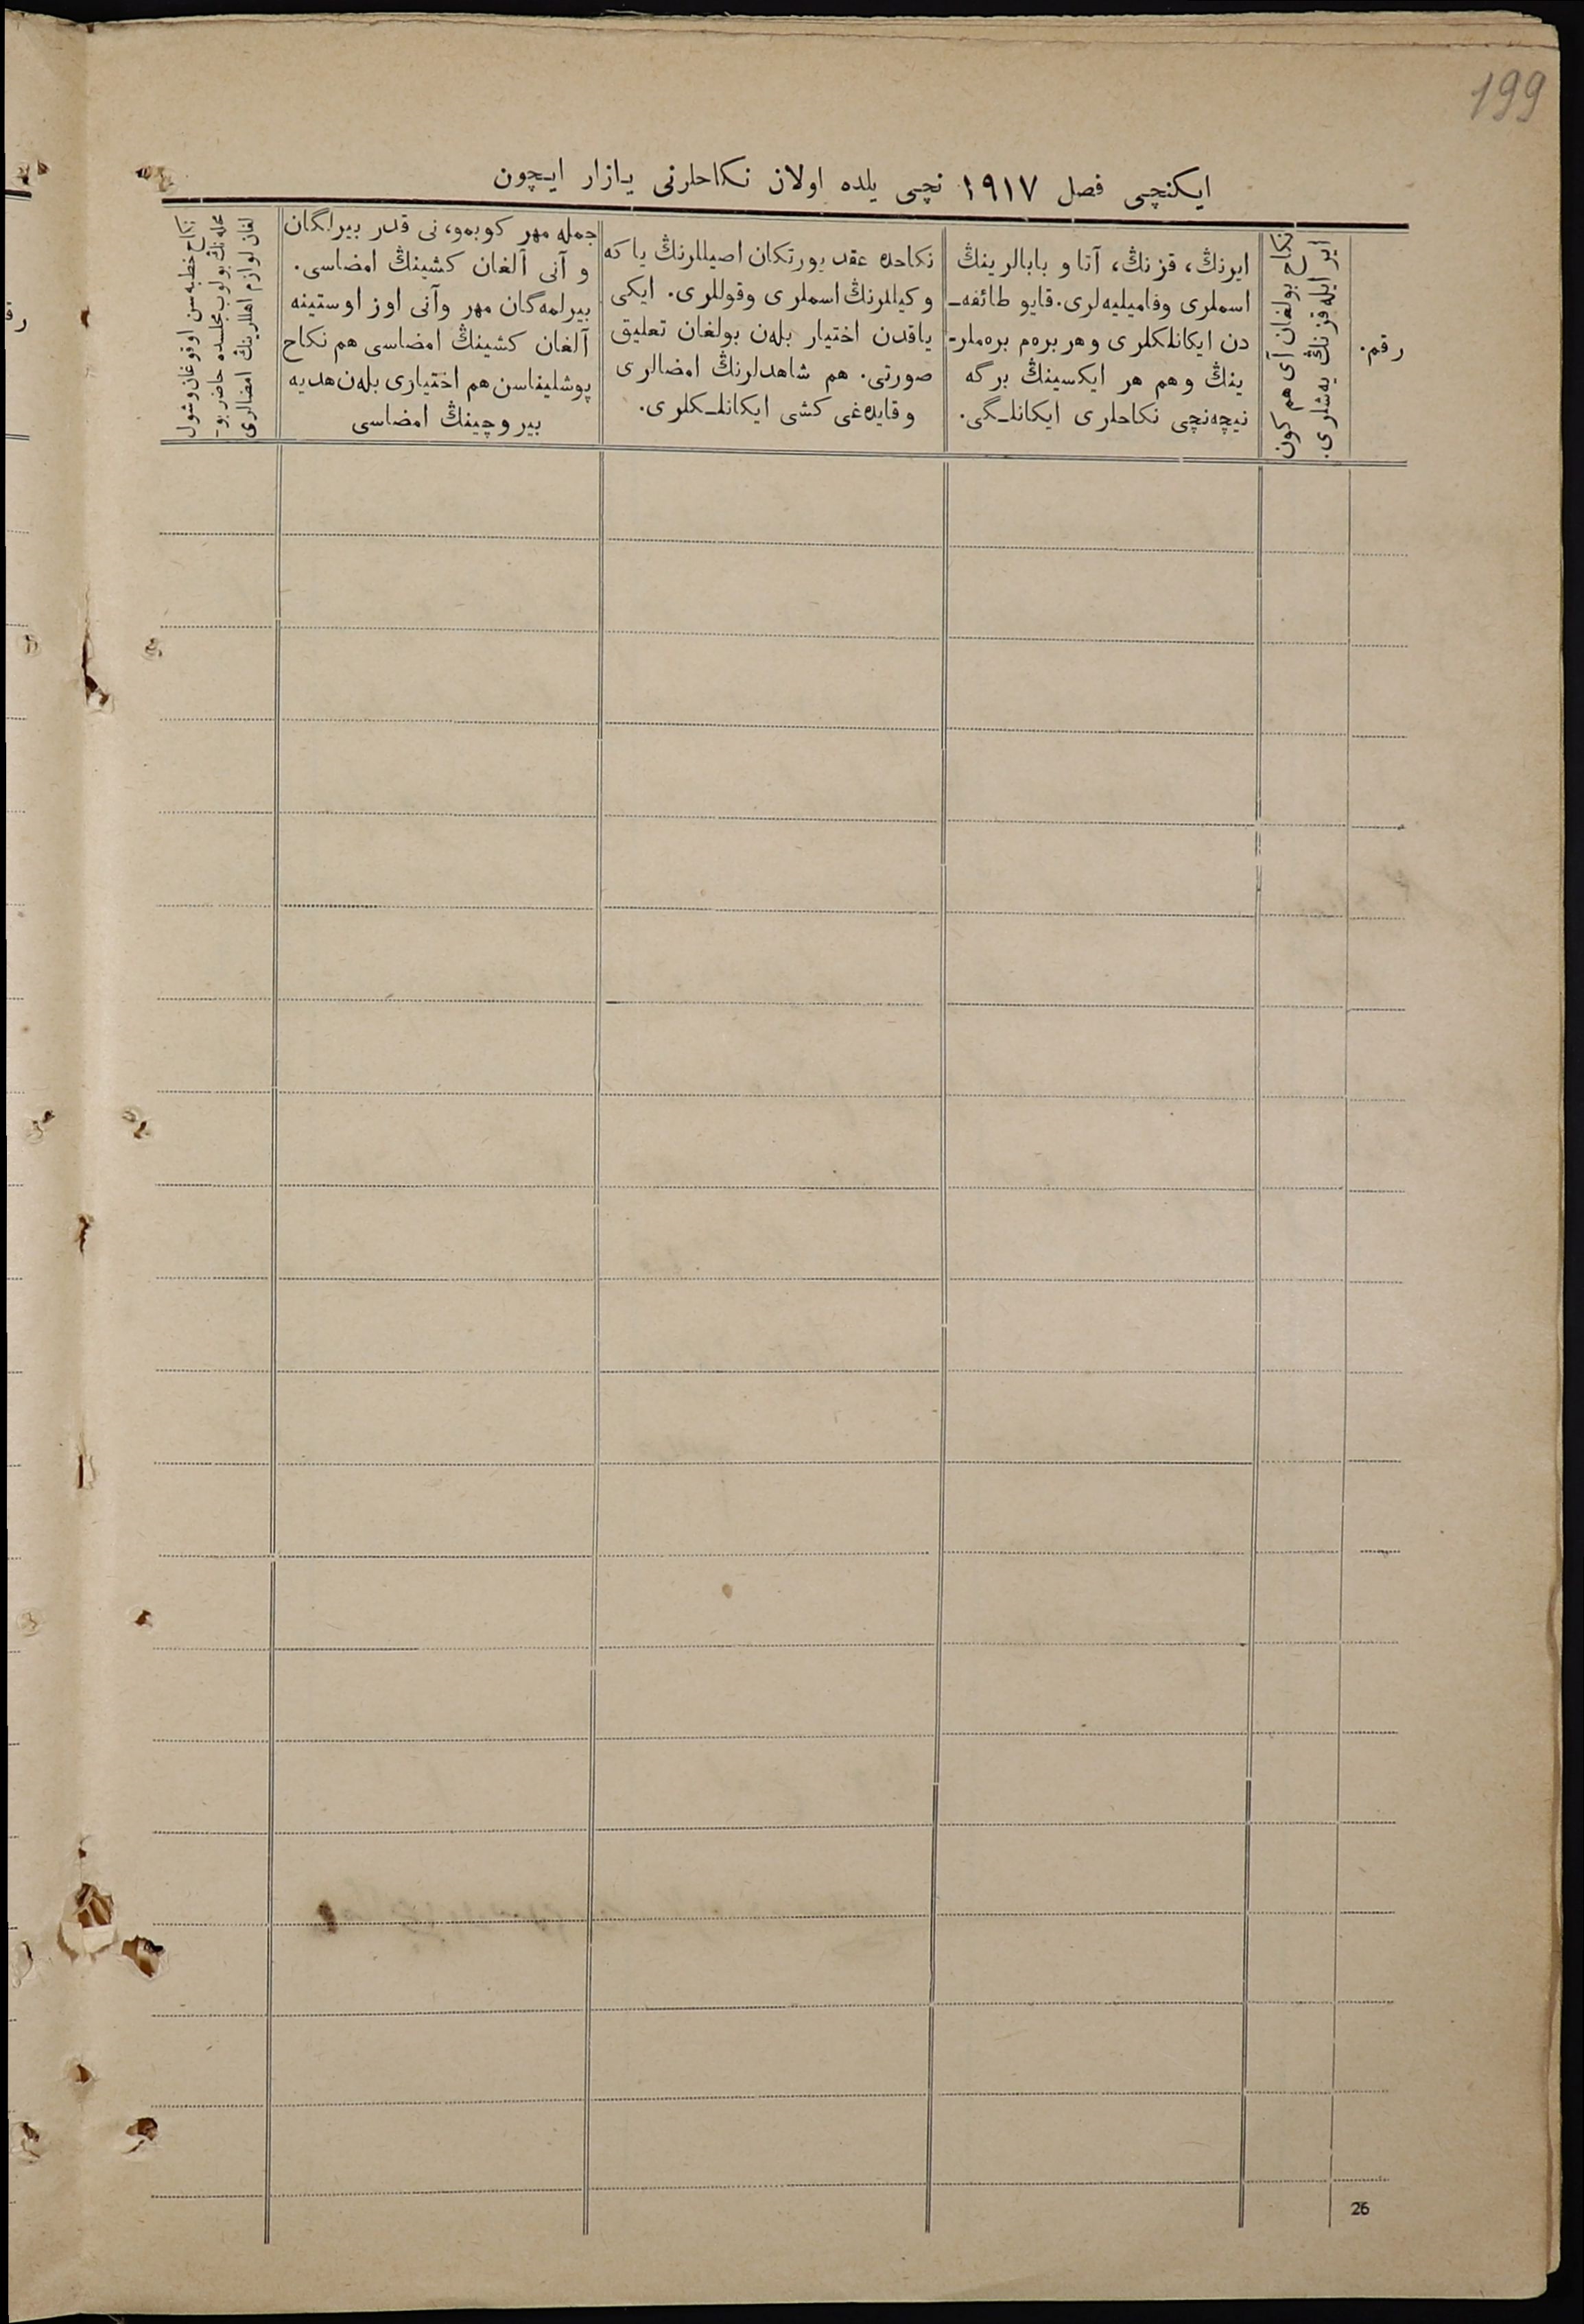 199
ایكنچی فصل ١٩١٧ نچی یلده اولان نكاحلرنی یازار ایچون
رقم.
نكاح بولغان آی هم كون
ایر ایله قزنڭ یه‌شلری.
ایرنڭ، قزنڭ، آتا و بابالرینڭ
اسملری وفامیلیه‌لری. قایو طائفه‌ـ
دن ایكانلكلری وهر بره‌م بره‌ملر-
ینڭ وهم هر ایكسینڭ برگه
نیچه‌نچی نكاحلری ایكانلـگی.
نكاحده عقد یورتكان اصیللرنڭ یا كه
وكیللرنڭ اسملری وقوللری. ایكی
یاقدن اختیار بله‌ن بولغان تعلیق
صورتی. هم شاهدلرنڭ امضالری
وقایده‌غی كشی ایكانلـكلری.
جمله مهر كوبمو، نی قدر بیرلگان
و آنی آلغان كشینڭ امضاسی.
بیرلمه‌گان مهر وآنی اوز اوستینه
آلغان كشینڭ امضاسی هم نكاح
پوشلیناسن هم اختیاری بله‌ن هدیه
بیروچینڭ امضاسی
نكاح خطبه‌سن اوقوغان وشول
محله‌نڭ بولوب مجلسده حاضر بو-
لغان لوازم اهللرینڭ امضالری
26